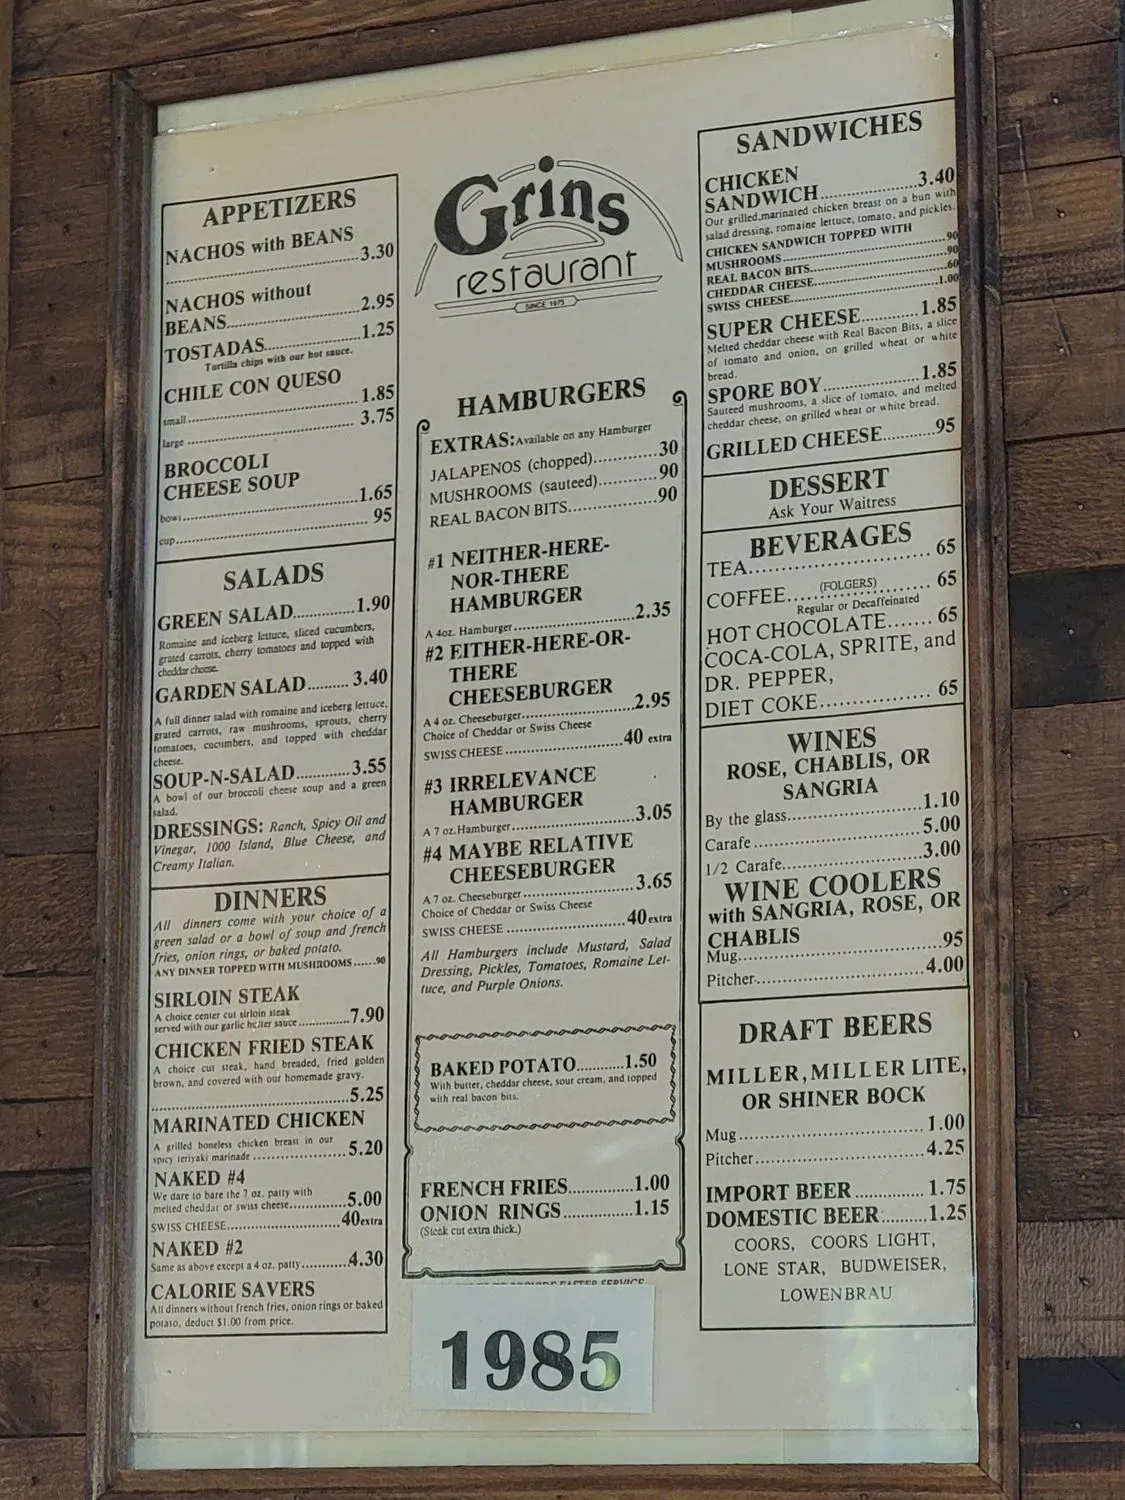 Grins
restaurant
SINCE 1975
APPETIZERS
NACHOS with BEANS
..........3.30
NACHOS without
BEANS..........2.95
TOSTADAS..........1.25
Tortilla chips with our hot sauce.
CHILE CON QUESO
small..........1.85
large..........3.75
BROCCOLI
CHEESE SOUP
bowl..........1.65
cup..........95
SALADS
GREEN SALAD..........1.90
Romaine and iceberg lettuce, sliced cucumbers,
grated carrots, cherry tomatoes and topped with
cheddar cheese.
GARDEN SALAD..........3.40
A full dinner salad with romaine and iceberg lettuce,
grated carrots, raw mushrooms, sprouts, cherry
tomatoes, cucumbers, and topped with cheddar
cheese.
SOUP-N-SALAD..........3.55
A bowl of our broccoli cheese soup and a green
salad.
DRESSINGS: Ranch, Spicy Oil and
Vinegar, 1000 Island, Blue Cheese, and
Creamy Italian.
DINNERS
All dinners come with your choice of a
green salad or a bowl of soup and french
fries, onion rings, or baked potato.
ANY DINNER TOPPED WITH MUSHROOMS......90
SIRLOIN STEAK
A choice center cut sirloin steak
served with our garlic butter sauce..........7.90
CHICKEN FRIED STEAK
A choice cut steak, hand breaded, fried golden
brown, and covered with our homemade gravy.
..........5.25
MARINATED CHICKEN
A grilled boneless chicken breast in our
spicy teriyaki marinade..........5.20
NAKED #4
We dare to bare the 7 oz. patty with
melted cheddar or swiss cheese..........5.00
SWISS CHEESE..........40 extra
NAKED #2
Same as above except a 4 oz. patty..........4.30
CALORIE SAVERS
All dinners without french fries, onion rings or baked
potato, deduct $1.00 from price.
HAMBURGERS
EXTRAS: Available on any Hamburger
JALAPENOS (chopped)..........30
MUSHROOMS (sauteed)..........90
REAL BACON BITS..........90
#1 NEITHER-HERE-
NOR-THERE
HAMBURGER
A 4oz. Hamburger..........2.35
#2 EITHER-HERE-OR-
THERE
CHEESEBURGER
A 4 oz. Cheeseburger..........2.95
Choice of Cheddar or Swiss Cheese
SWISS CHEESE..........40 extra
#3 IRRELEVANCE
HAMBURGER
A 7 oz. Hamburger..........3.05
#4 MAYBE RELATIVE
CHEESEBURGER
A 7 oz. Cheeseburger..........3.65
Choice of Cheddar or Swiss Cheese
SWISS CHEESE..........40 extra
All Hamburgers include Mustard, Salad
Dressing, Pickles, Tomatoes, Romaine Let-
tuce, and Purple Onions.
BAKED POTATO..........1.50
With butter, cheddar cheese, sour cream, and topped
with real bacon bits.
FRENCH FRIES..........1.00
ONION RINGS..........1.15
(Steak cut extra thick.)
PROVIDE FASTER SERVICE
1985
SANDWICHES
CHICKEN
SANDWICH..........3.40
Our grilled, marinated chicken breast on a bun with
salad dressing, romaine lettuce, tomato, and pickles.
CHICKEN SANDWICH TOPPED WITH
MUSHROOMS..........90
REAL BACON BITS..........90
CHEDDAR CHEESE..........60
SWISS CHEESE..........1.00
SUPER CHEESE..........1.85
Melted cheddar cheese with Real Bacon Bits, a slice
of tomato and onion, on grilled wheat or white
bread.
SPORE BOY..........1.85
Sauteed mushrooms, a slice of tomato, and melted
cheddar cheese, on grilled wheat or white bread.
GRILLED CHEESE..........95
DESSERT
Ask Your Waitress
BEVERAGES
TEA..........65
COFFEE....(FOLGERS)......65
Regular or Decaffeinated
HOT CHOCOLATE.......65
COCA-COLA, SPRITE, and
DR. PEPPER,
DIET COKE..........65
WINES
ROSE, CHABLIS, OR
SANGRIA
By the glass..........1.10
Carafe..........5.00
1/2 Carafe..........3.00
WINE COOLERS
with SANGRIA, ROSE, OR
CHABLIS
Mug..........95
Pitcher..........4.00
DRAFT BEERS
MILLER, MILLER LITE,
OR SHINER BOCK
Mug..........1.00
Pitcher..........4.25
IMPORT BEER..........1.75
DOMESTIC BEER..........1.25
COORS, COORS LIGHT,
LONE STAR, BUDWEISER,
LOWENBRAU